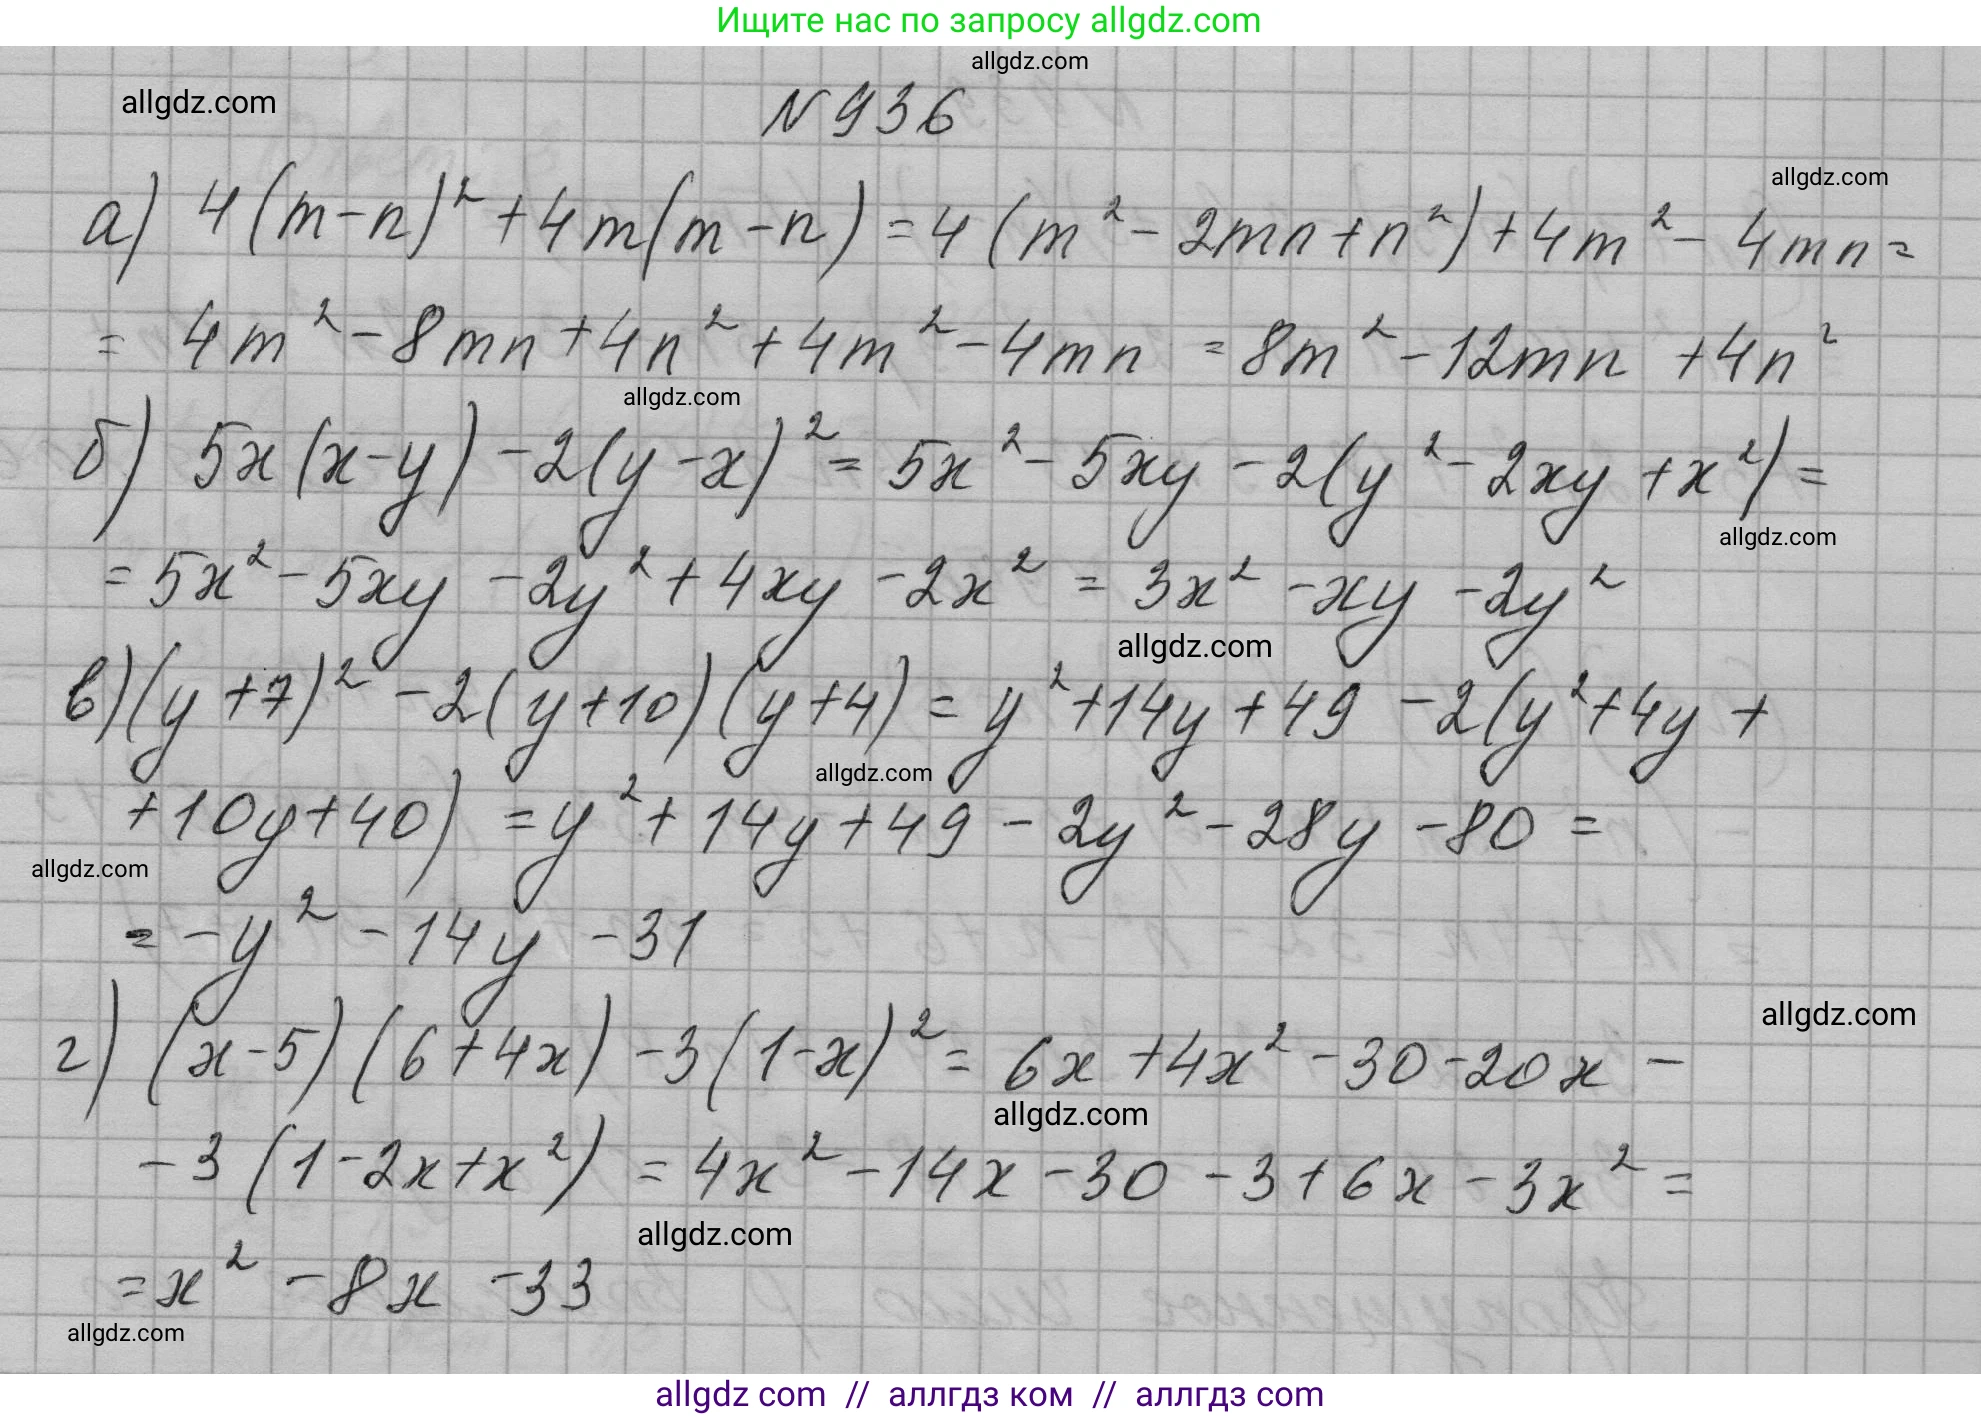 Ищите нас по запросу allgdz.com
allgdz.com
allgdz.com
N 936
allgdz.com
а) 4(m-n)² + 4m(m-n) = 4(m² - 2mn + n²) + 4m² - 4mn =
= 4m² - 8mn + 4n² + 4m² - 4mn = 8m² - 12mn + 4n²
allgdz.com
б) 5x(x-y) - 2(y-x)² = 5x² - 5xy - 2(y² - 2xy + x²) =
allgdz.com
= 5x² - 5xy - 2y² + 4xy - 2x² = 3x² - xy - 2y²
allgdz.com
в) (y+7)² - 2(y+10)(y+4) = y² + 14y + 49 - 2(y² + 4y +
allgdz.com
+ 10y + 40) = y² + 14y + 49 - 2y² - 28y - 80 =
allgdz.com
= -y² - 14y - 31
allgdz.com
г) (x-5)(6+4x) - 3(1-x)² = 6x + 4x² - 30 - 20x -
allgdz.com
- 3(1 - 2x + x²) = 4x² - 14x - 30 - 3 + 6x - 3x² =
allgdz.com
= x² - 8x - 33
allgdz.com
allgdz com // аллгдз ком // аллгдз com